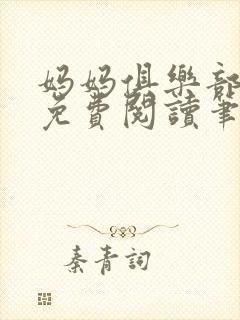 媽媽俱樂部
免費閱讀筆
秦青詞